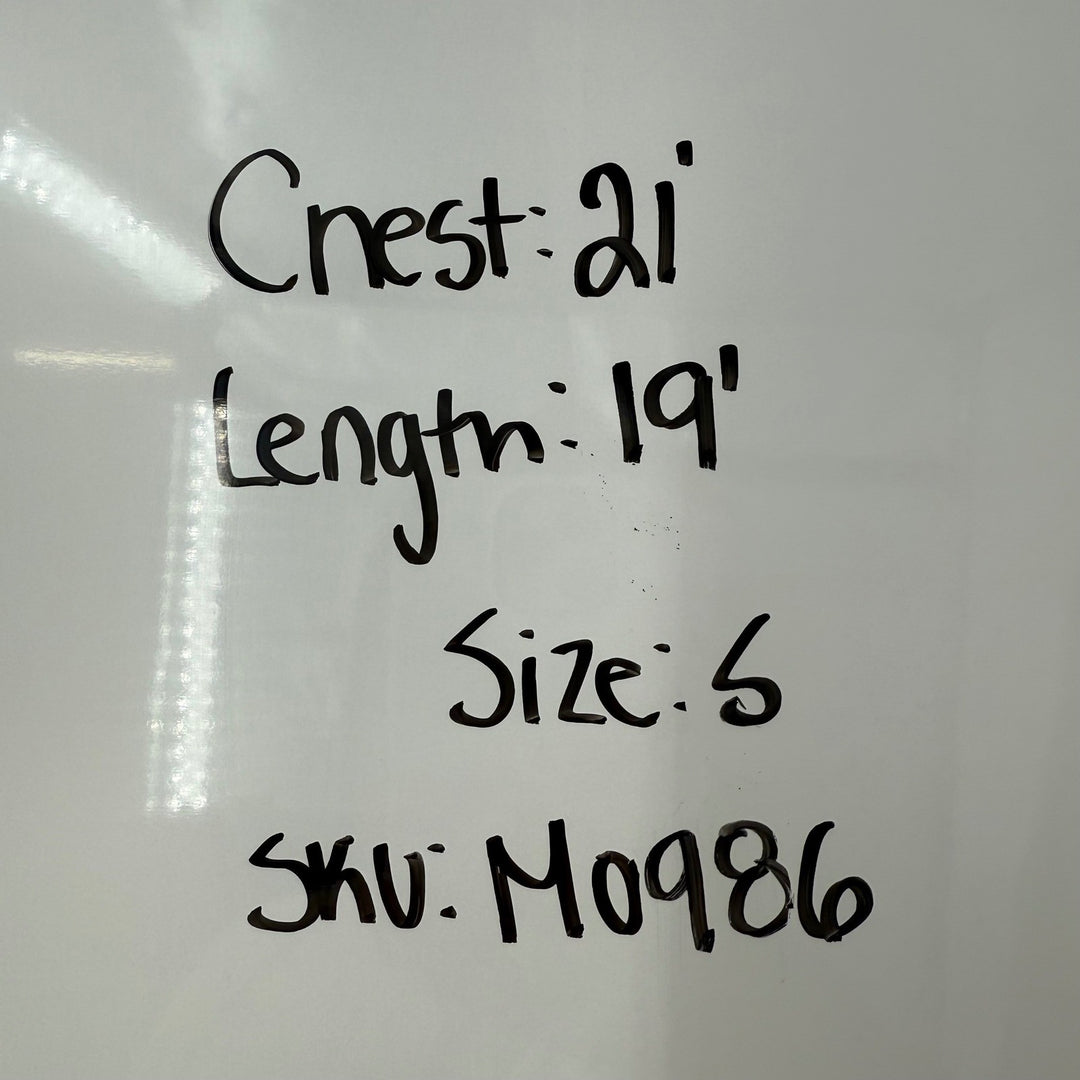 Chest: 21'
Length: 19'
Size: S
SKU: M0986